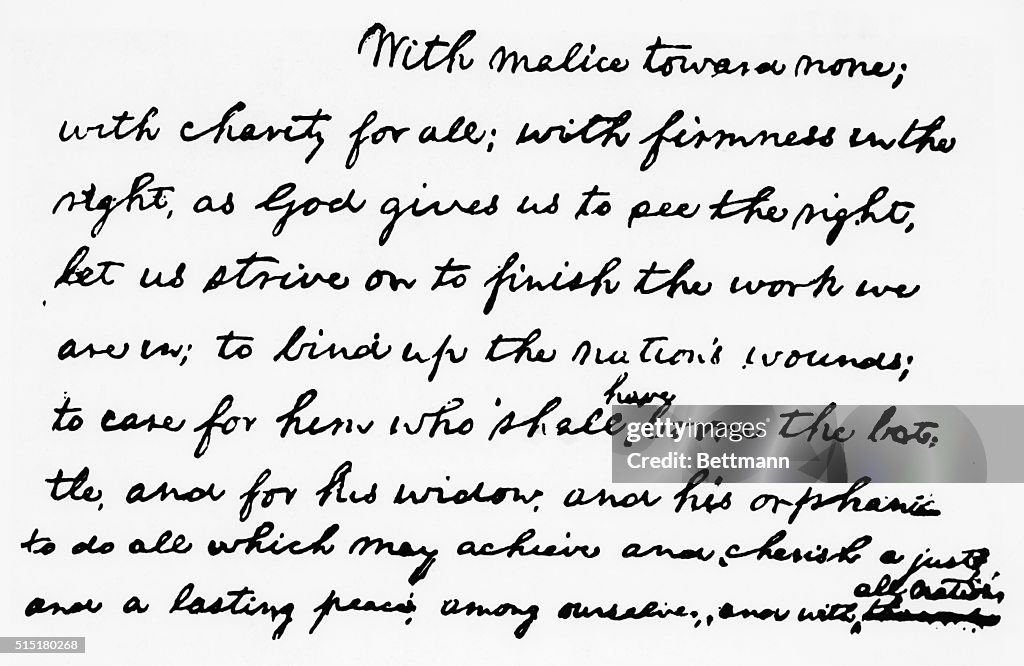 With malice toward none;
with charity for all; with firmness in the
right, as God gives us to see the right,
let us strive on to finish the work we
are in; to bind up the nation's wounds;
have
to care for him who shall the bat-
tle, and for his widow, and his orphan
to do all which may achieve and cherish a just,
all nations
and a lasting peace, among ourselves, and with
gettyimages
Bettmann
515180268